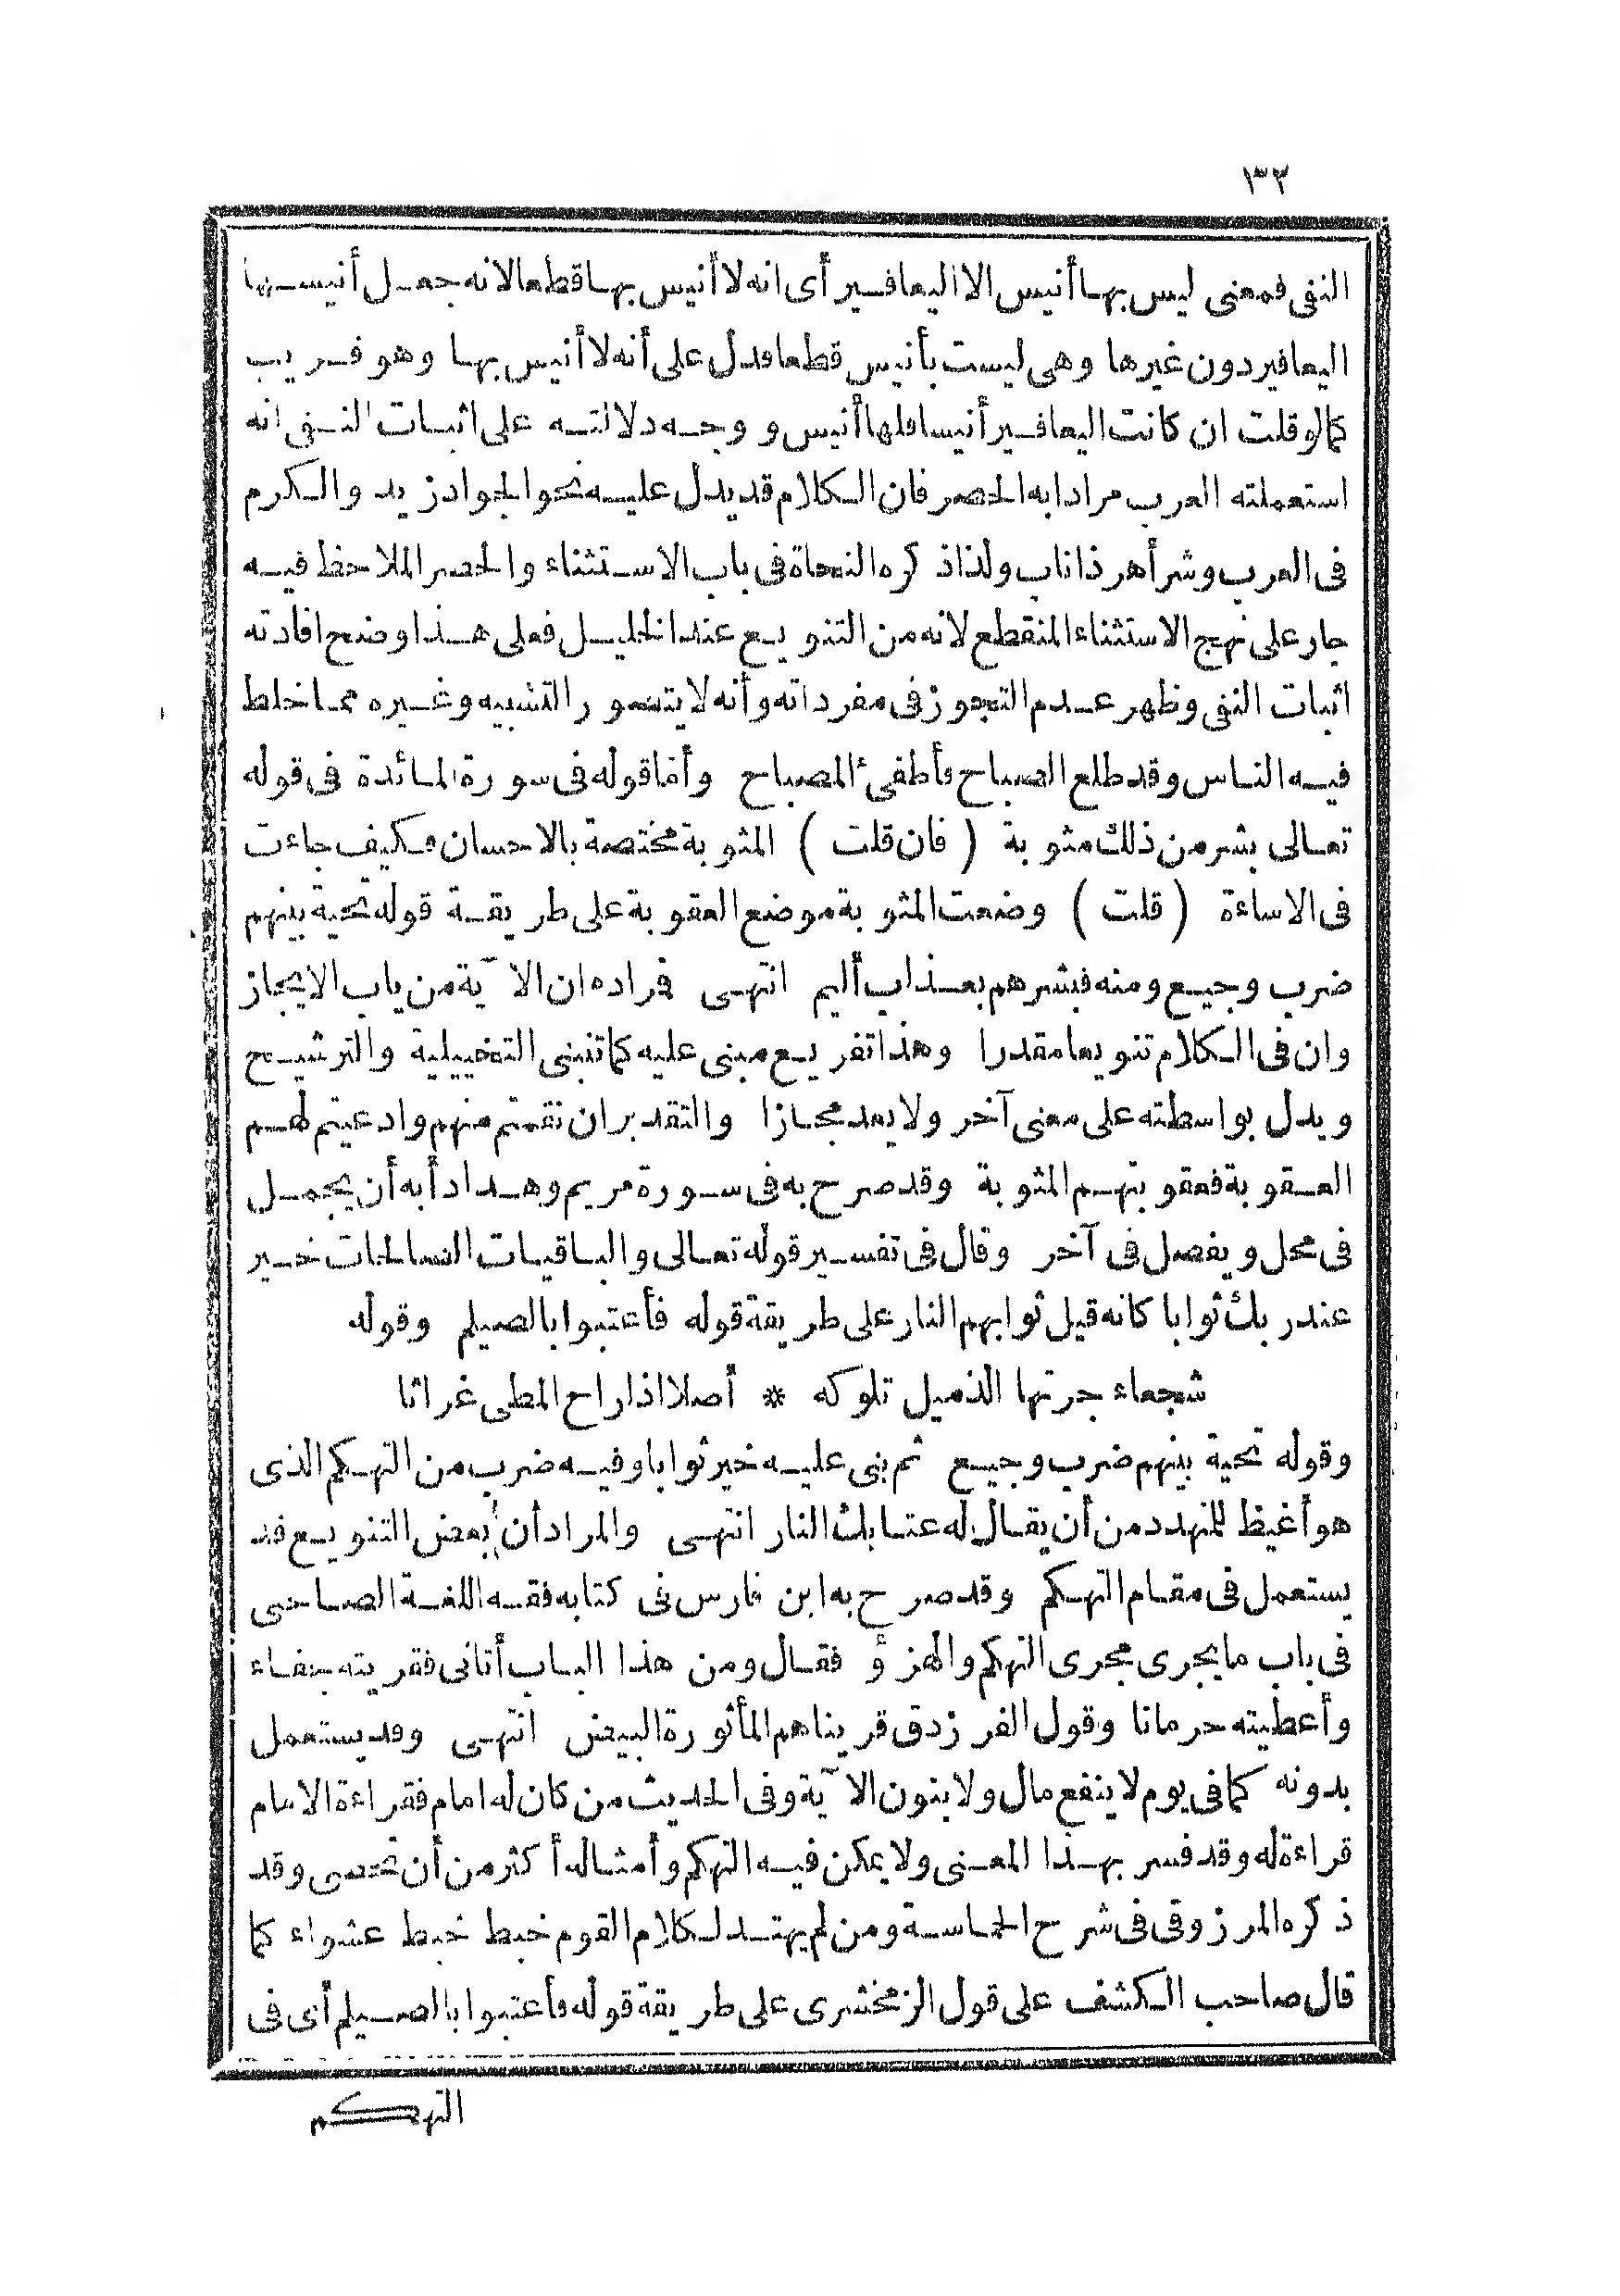 ١٣٢
النفى فمعنى ليس بها أنيس الا اليعافير أى انه لا أنيس بها قطعا لانه جعل أنيسها
اليعافير دون غيرها وهى ليست بأنيس قطعا فدل على أنه لا أنيس بها وهو قريب
كما لو قلت ان كانت اليعافير أنيسا فلها أنيس و وجه دلالته على اثبات النفى انه
استعملته العرب مرادا به الحصر فان الكلام قد يدل عليه نحو الجواد زيد والكرم
فى العرب وشر أهر ذا ناب ولذا ذكره النحاة فى باب الاستثناء والحصر الملاحظ فيه
جار على نهج الاستثناء المنقطع لانه من التنويع عند الخليل فعلى هذا وضح افادته
اثبات النفى وظهر عدم التجوز فى مفرداته وأنه لا يتصور التشبيه وغيره مما خلط
فيه الناس وقد طلع الصباح فأطفئ المصباح وأما قوله فى سورة المائدة فى قوله
تعالى بشر من ذلك مثوبة ( فان قلت ) المثوبة مختصة بالاحسان فكيف جاءت
فى الاساءة ( قلت ) وضعت المثوبة موضع العقوبة على طريقة قوله تحية بينهم
ضرب وجيع ومنه فبشرهم بعذاب أليم انتهى فراده ان الآية من باب الايجاز
وان فى الكلام تنويعا مقدرا وهذا تفريع مبنى عليه كما تنبنى التخييلية والترشيح
ويدل بواسطته على معنى آخر ولا يعد مجازا والتقدير ان نقمتم منهم وادعيتم لهم
العقوبة فعقوبتهم المثوبة وقد صرح به فى سورة مريم وهذا دأبه أن يجمل
فى محل ويفصل فى آخر وقال فى تفسير قوله تعالى والباقيات الصالحات خير
عند ربك ثوابا كانه قيل ثوابهم النار على طريقة قوله فأعتبوا بالصيلم وقوله
شجعاء جرتها الذميل تلوكه * أصلا اذا راح المطى غراثا
وقوله تحية بينهم ضرب وجيع ثم بنى عليه خير ثوابا وفيه ضرب من التهكم الذى
هو أغيظ للمتهدد من أن يقال له عتابك النار انتهى والمراد أن بعض التنويع قد
يستعمل فى مقام التهكم وقد صرح به ابن فارس فى كتابه فقه اللغة الصاحبى
فى باب ما يجرى مجرى التهكم والهزؤ فقال ومن هذا الباب أتانى فقريته جفاء
وأعطيته حرمانا وقول الفرزدق قريناهم المأثورة البيض انتهى وقد يستعمل
بدونه كما فى يوم لا ينفع مال ولا بنون الآية وفى الحديث من كان له امام فقراءة الامام
قراءة له وقد فسر بهذا المعنى ولا يمكن فيه التهكم وأمثاله أكثر من أن تحصى وقد
ذكره المرزوقى فى شرح الحماسة ومن لم يهتد لكلام القوم خبط خبط عشواء كما
قال صاحب الكشف على قول الزمخشرى على طريقة قوله فأعتبوا بالصيلم أى فى
التهكم